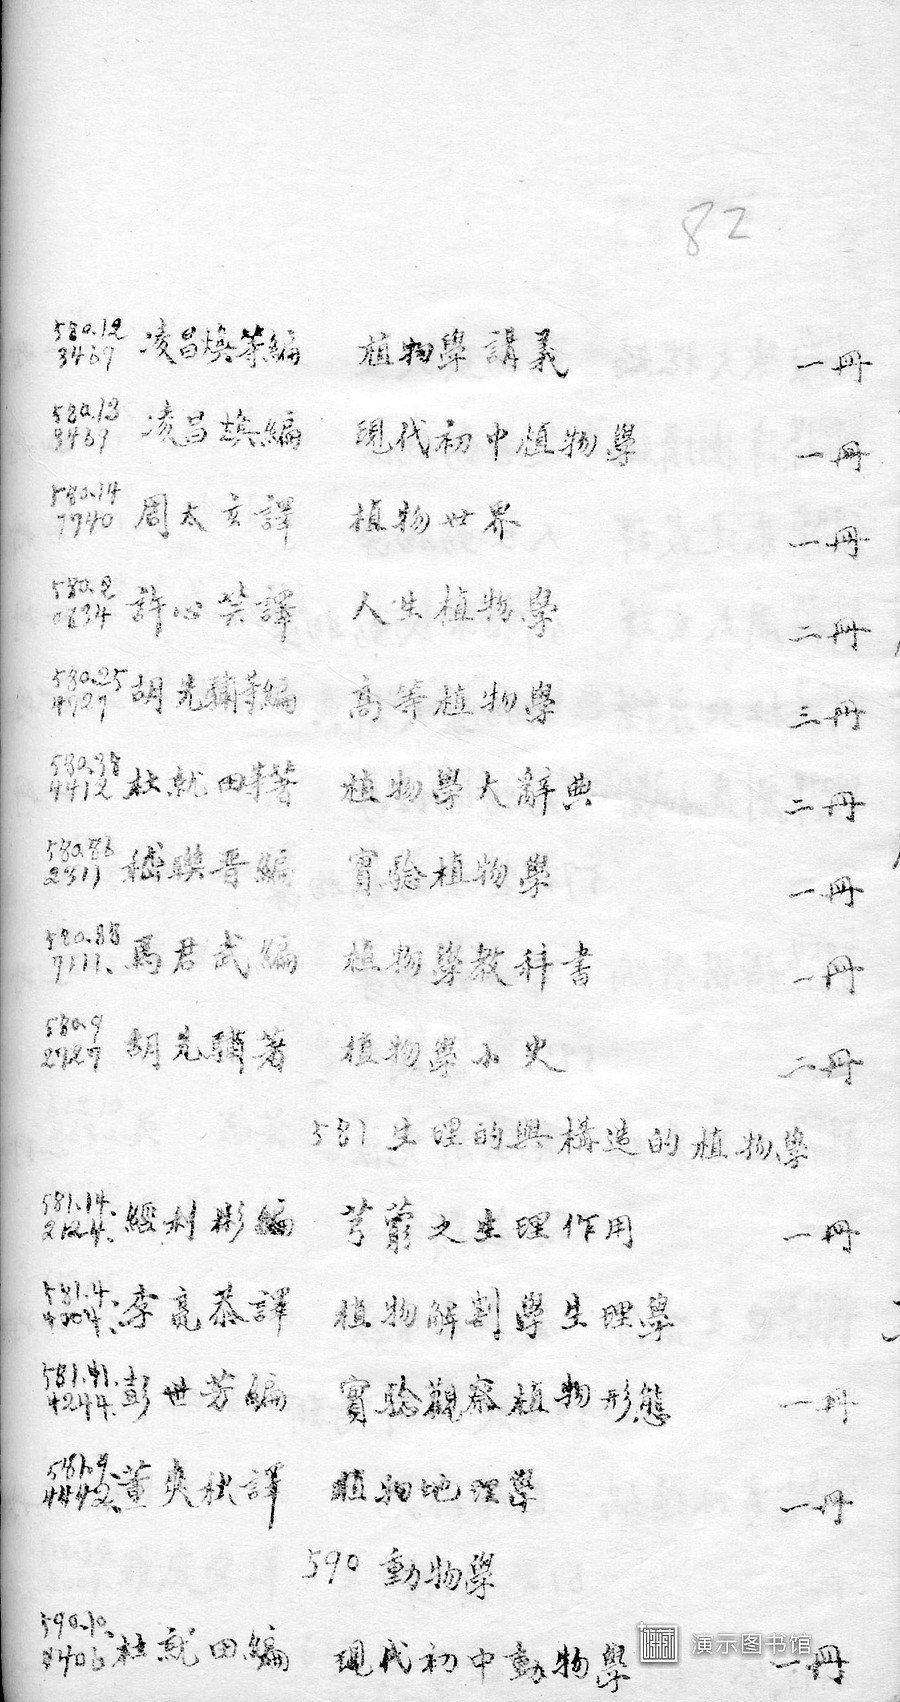 82
580.12 凌昌煥等編 植物學講義 一冊
3469
580.13 凌昌煥編 現代初中植物學 一冊
3469
580.14 周太玄譯 植物世界 一冊
7740
580.2 許心芸譯 人生植物學 二冊
0834
580.25 胡先驌等編 高等植物學 三冊
4727
580.38 杜就田等著 植物學大辭典 二冊
4412
580.86 嵇聯晋編 實驗植物學 一冊
580.88 馬君武編 植物學教科書 一冊
7111
580.9 胡先驌著 植物學小史 二冊
2727
581 生理的與構造的植物學
581.14. 經利彬編 芎藭之生理作用 一冊
2124.
581.4. 李亮恭譯 植物解剖學生理學
4004.
581.41. 彭世芳編 實驗觀察植物形態 一冊
4244.
581.9. 董爽秋譯 植物地理學 一冊
4442.
590 動物學
590.12. 杜就田編 現代初中動物學 一冊
演示图书馆